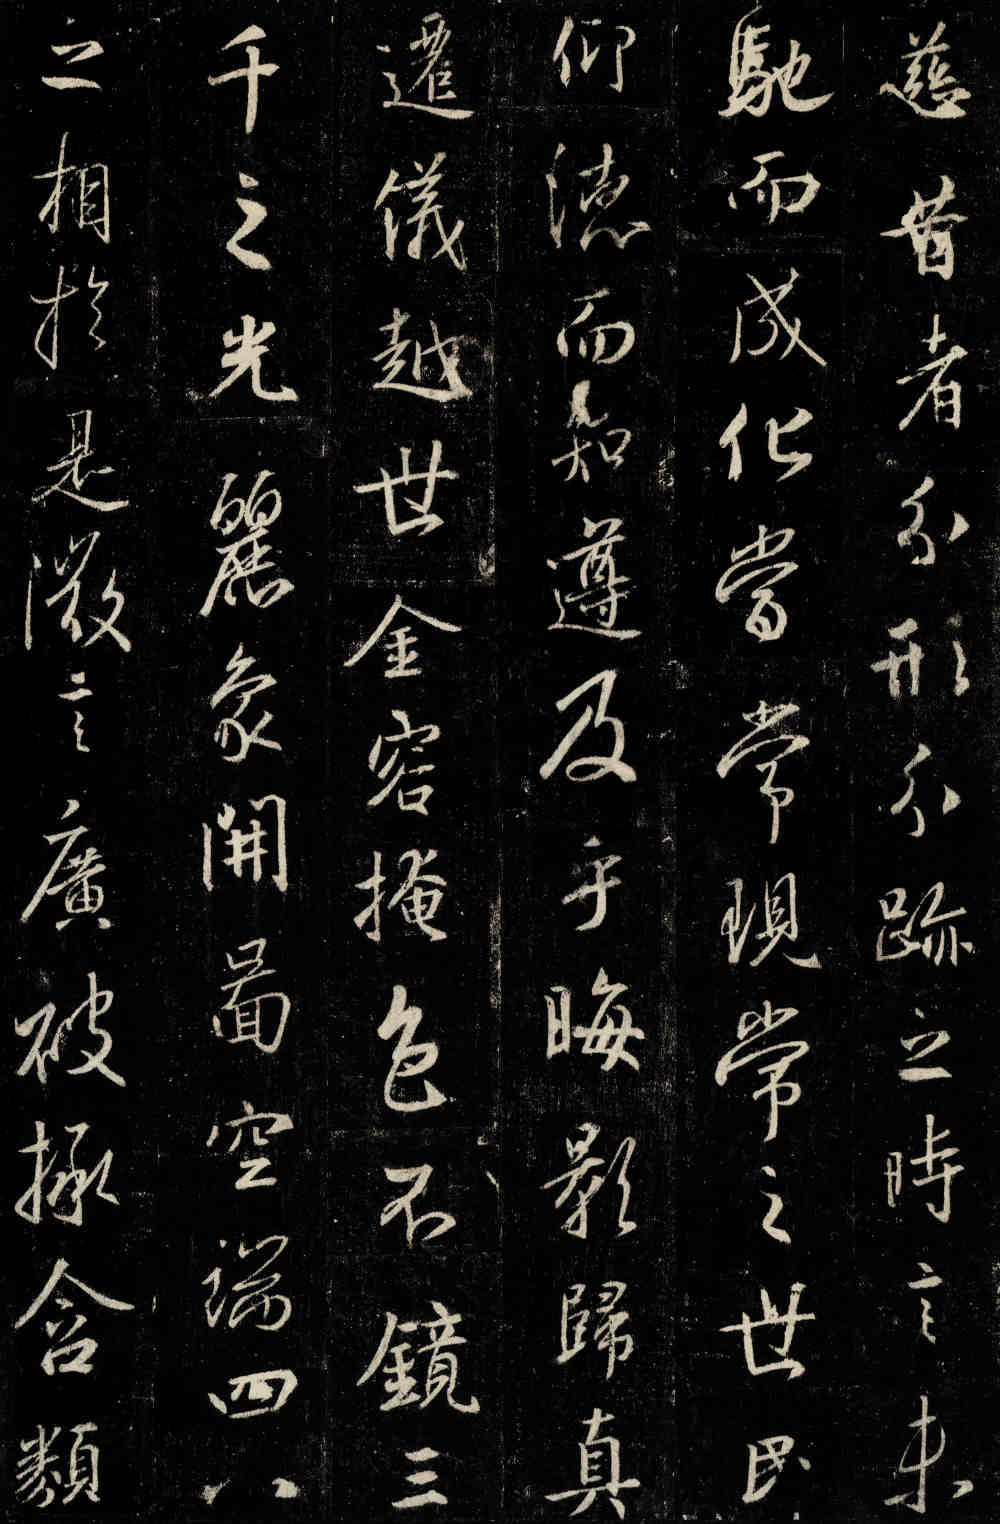 慈昔者分形分跡之時言未
馳而成化當常現常之世民
仰德而知遵及乎晦影歸真
遷儀越世金容掩色不鏡三
千之光麗象開圖空端四八
之相於是微言廣被拯含類